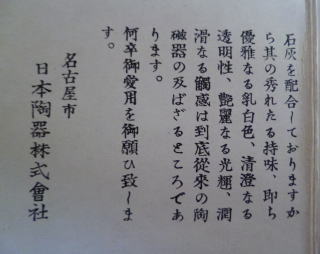 石灰を配合しておりますか
ら其の秀れたる持味、卽ち
優雅なる乳白色、清澄なる
透明性、艶麗なる光輝、潤
滑なる觸感は到底從來の陶
磁器の及ばざるところであ
ります。
何卒御愛用を御願ひ致しま
す。
名古屋市
日本陶器株式會社